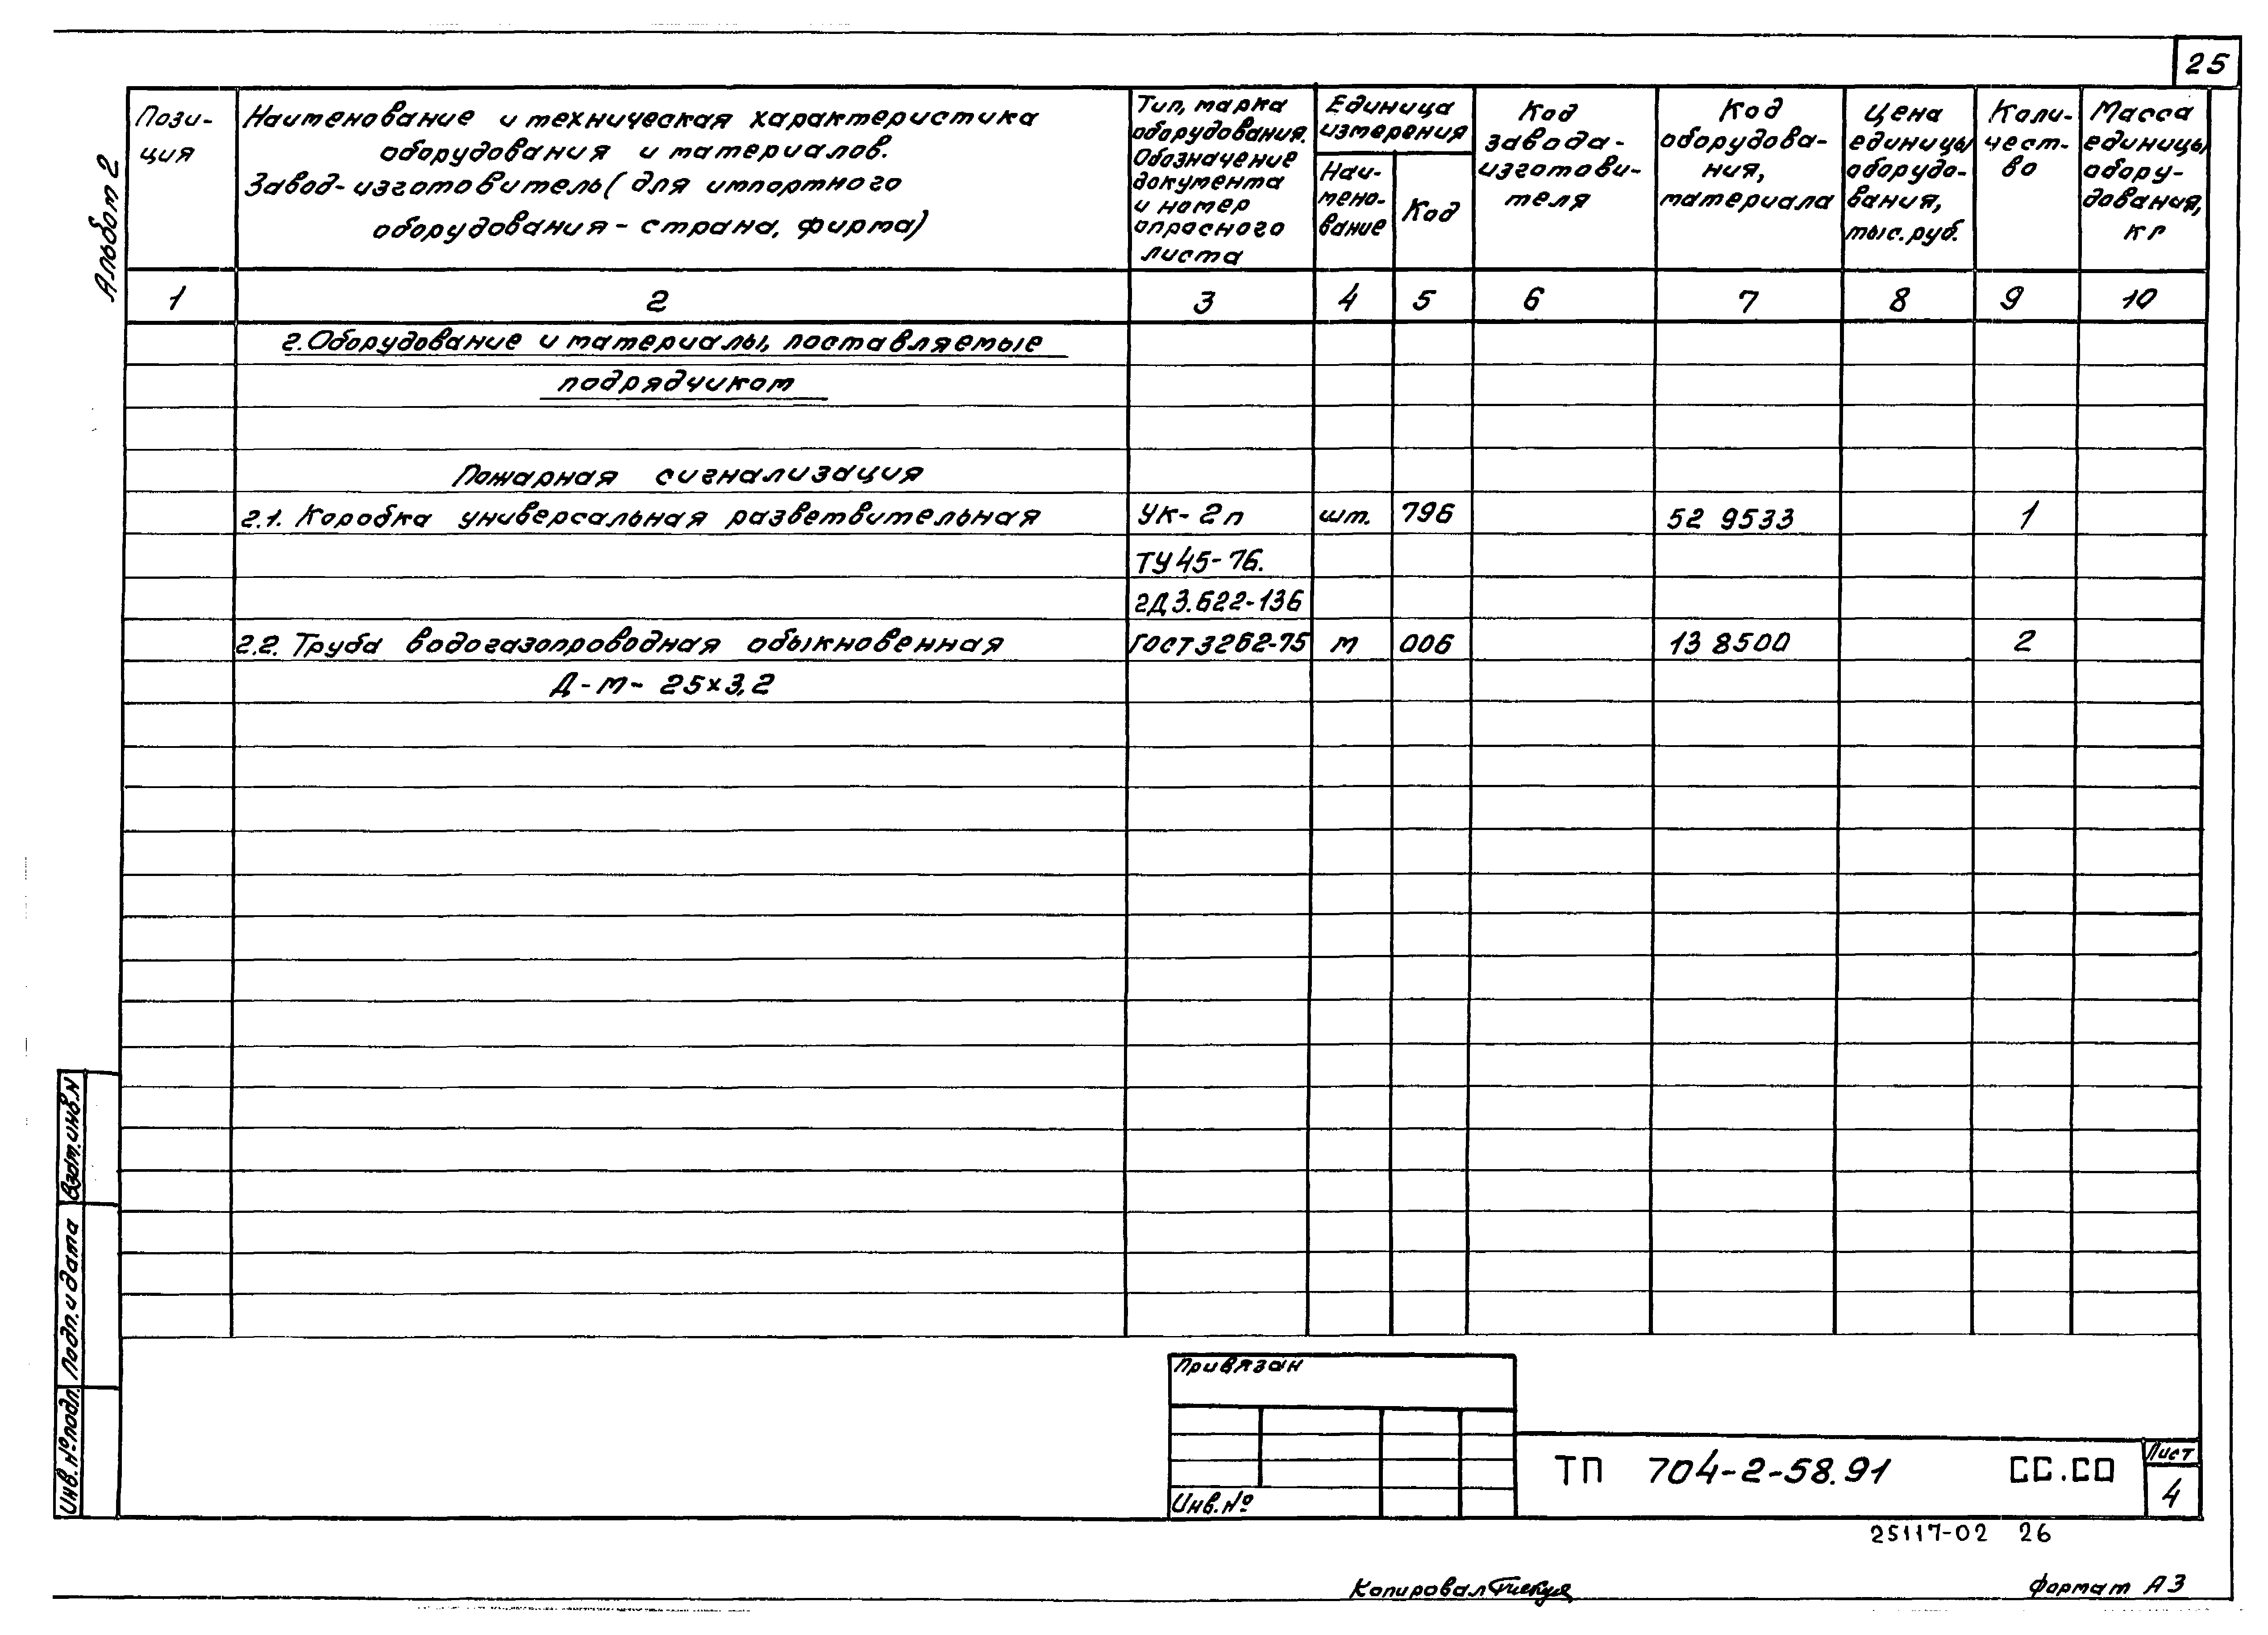 25
Альбом 2
Пози-
ция
Наименование и техническая характеристика
оборудования и материалов.
Завод-изготовитель (для импортного
оборудования - страна, фирма)
Тип, марка
оборудования.
Обозначение
документа
и номер
опросного
листа
Единица
измерения
Наи-
мено-
вание
Код
Код
завода-
изготови-
теля
Код
оборудова-
ния,
материала
Цена
единицы
оборудо-
вания,
тыс. руб.
Коли-
чест-
во
Масса
единицы
обору-
дования,
кг
1 2 3 4 5 6 7 8 9 10
2. Оборудование и материалы, поставляемые
подрядчиком
Пожарная сигнализация
2.1. Коробка универсальная разветвительная УК-2п шт. 796 52 9533 1
ТУ 45-76.
2Д3.622-136
2.2. Труба водогазопроводная обыкновенная ГОСТ 3262-75 м 006 13 8500 2
Д-м- 25×3,2
Взам.инв.N
Подп. и дата
Инв. № подл.
Привязан
Инв. №
ТП 704-2-58.91 СС.СО
Лист
4
25117-02 26
Копировал
Формат А3